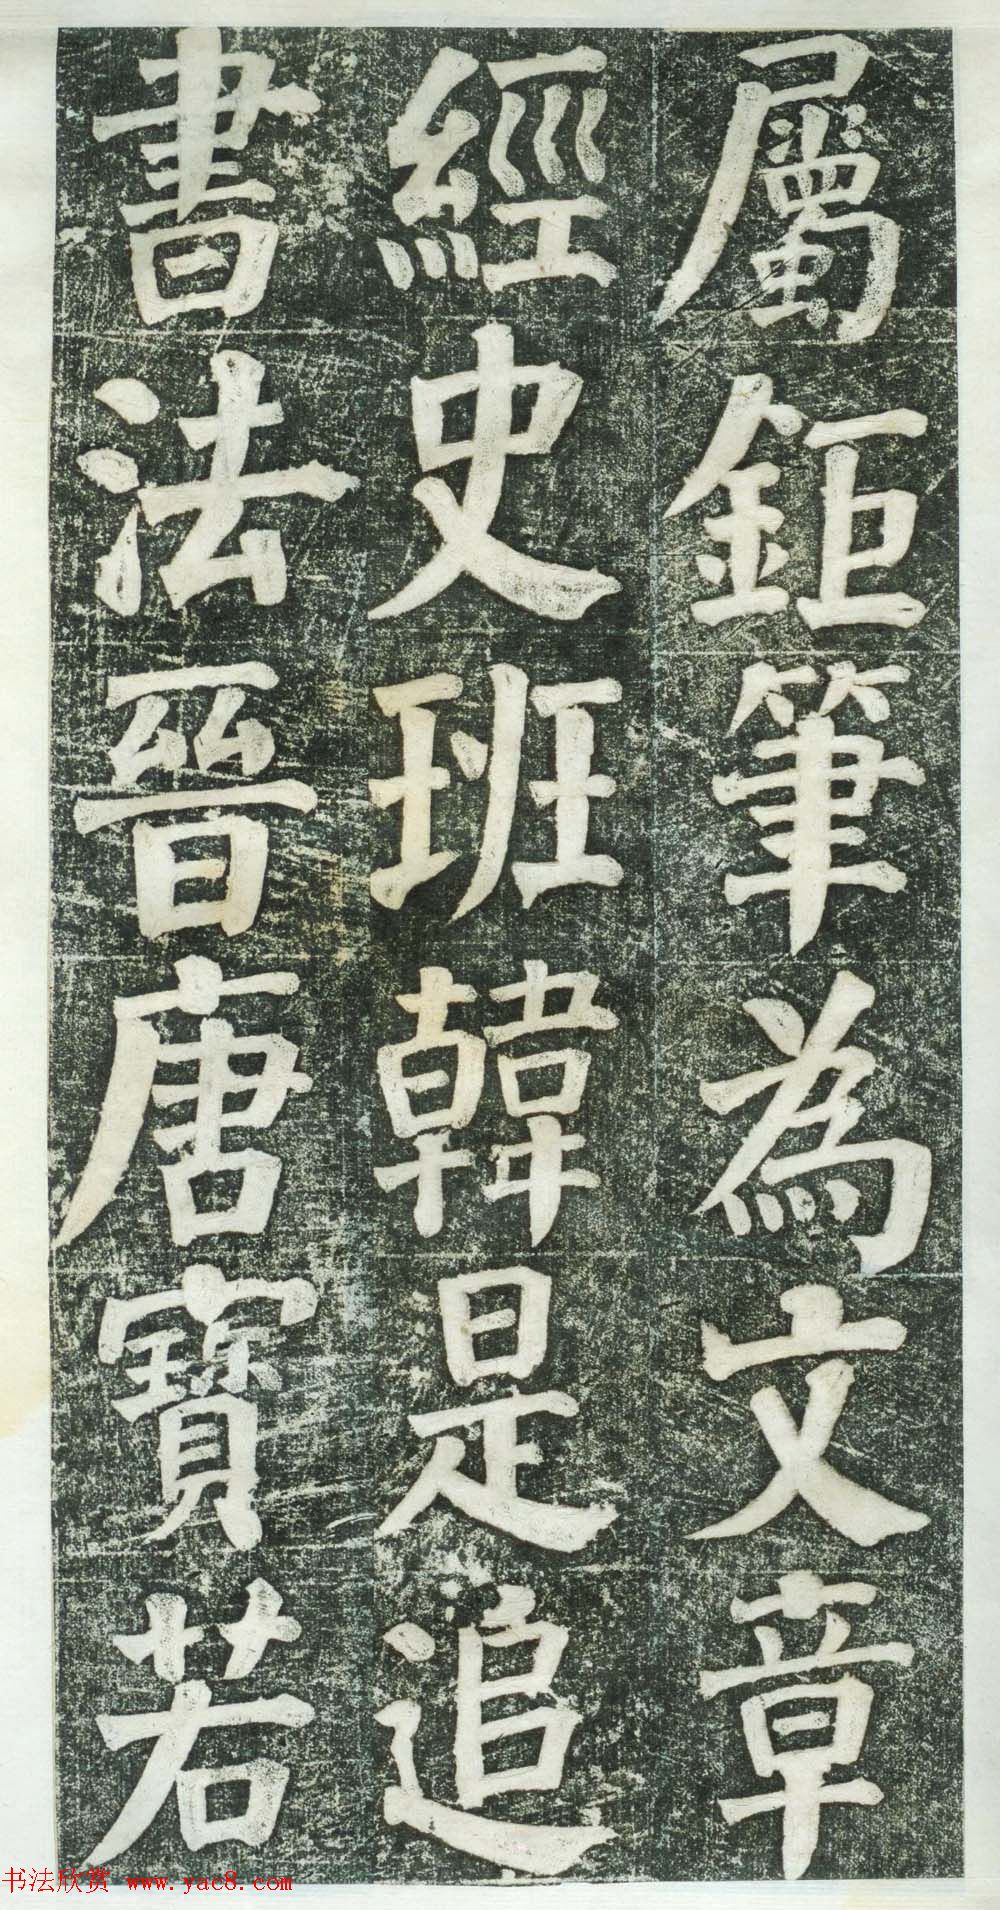 屬鉅筆為文章
經史班韓是追
書法晉唐寶若
书法欣赏 www.yac8.com